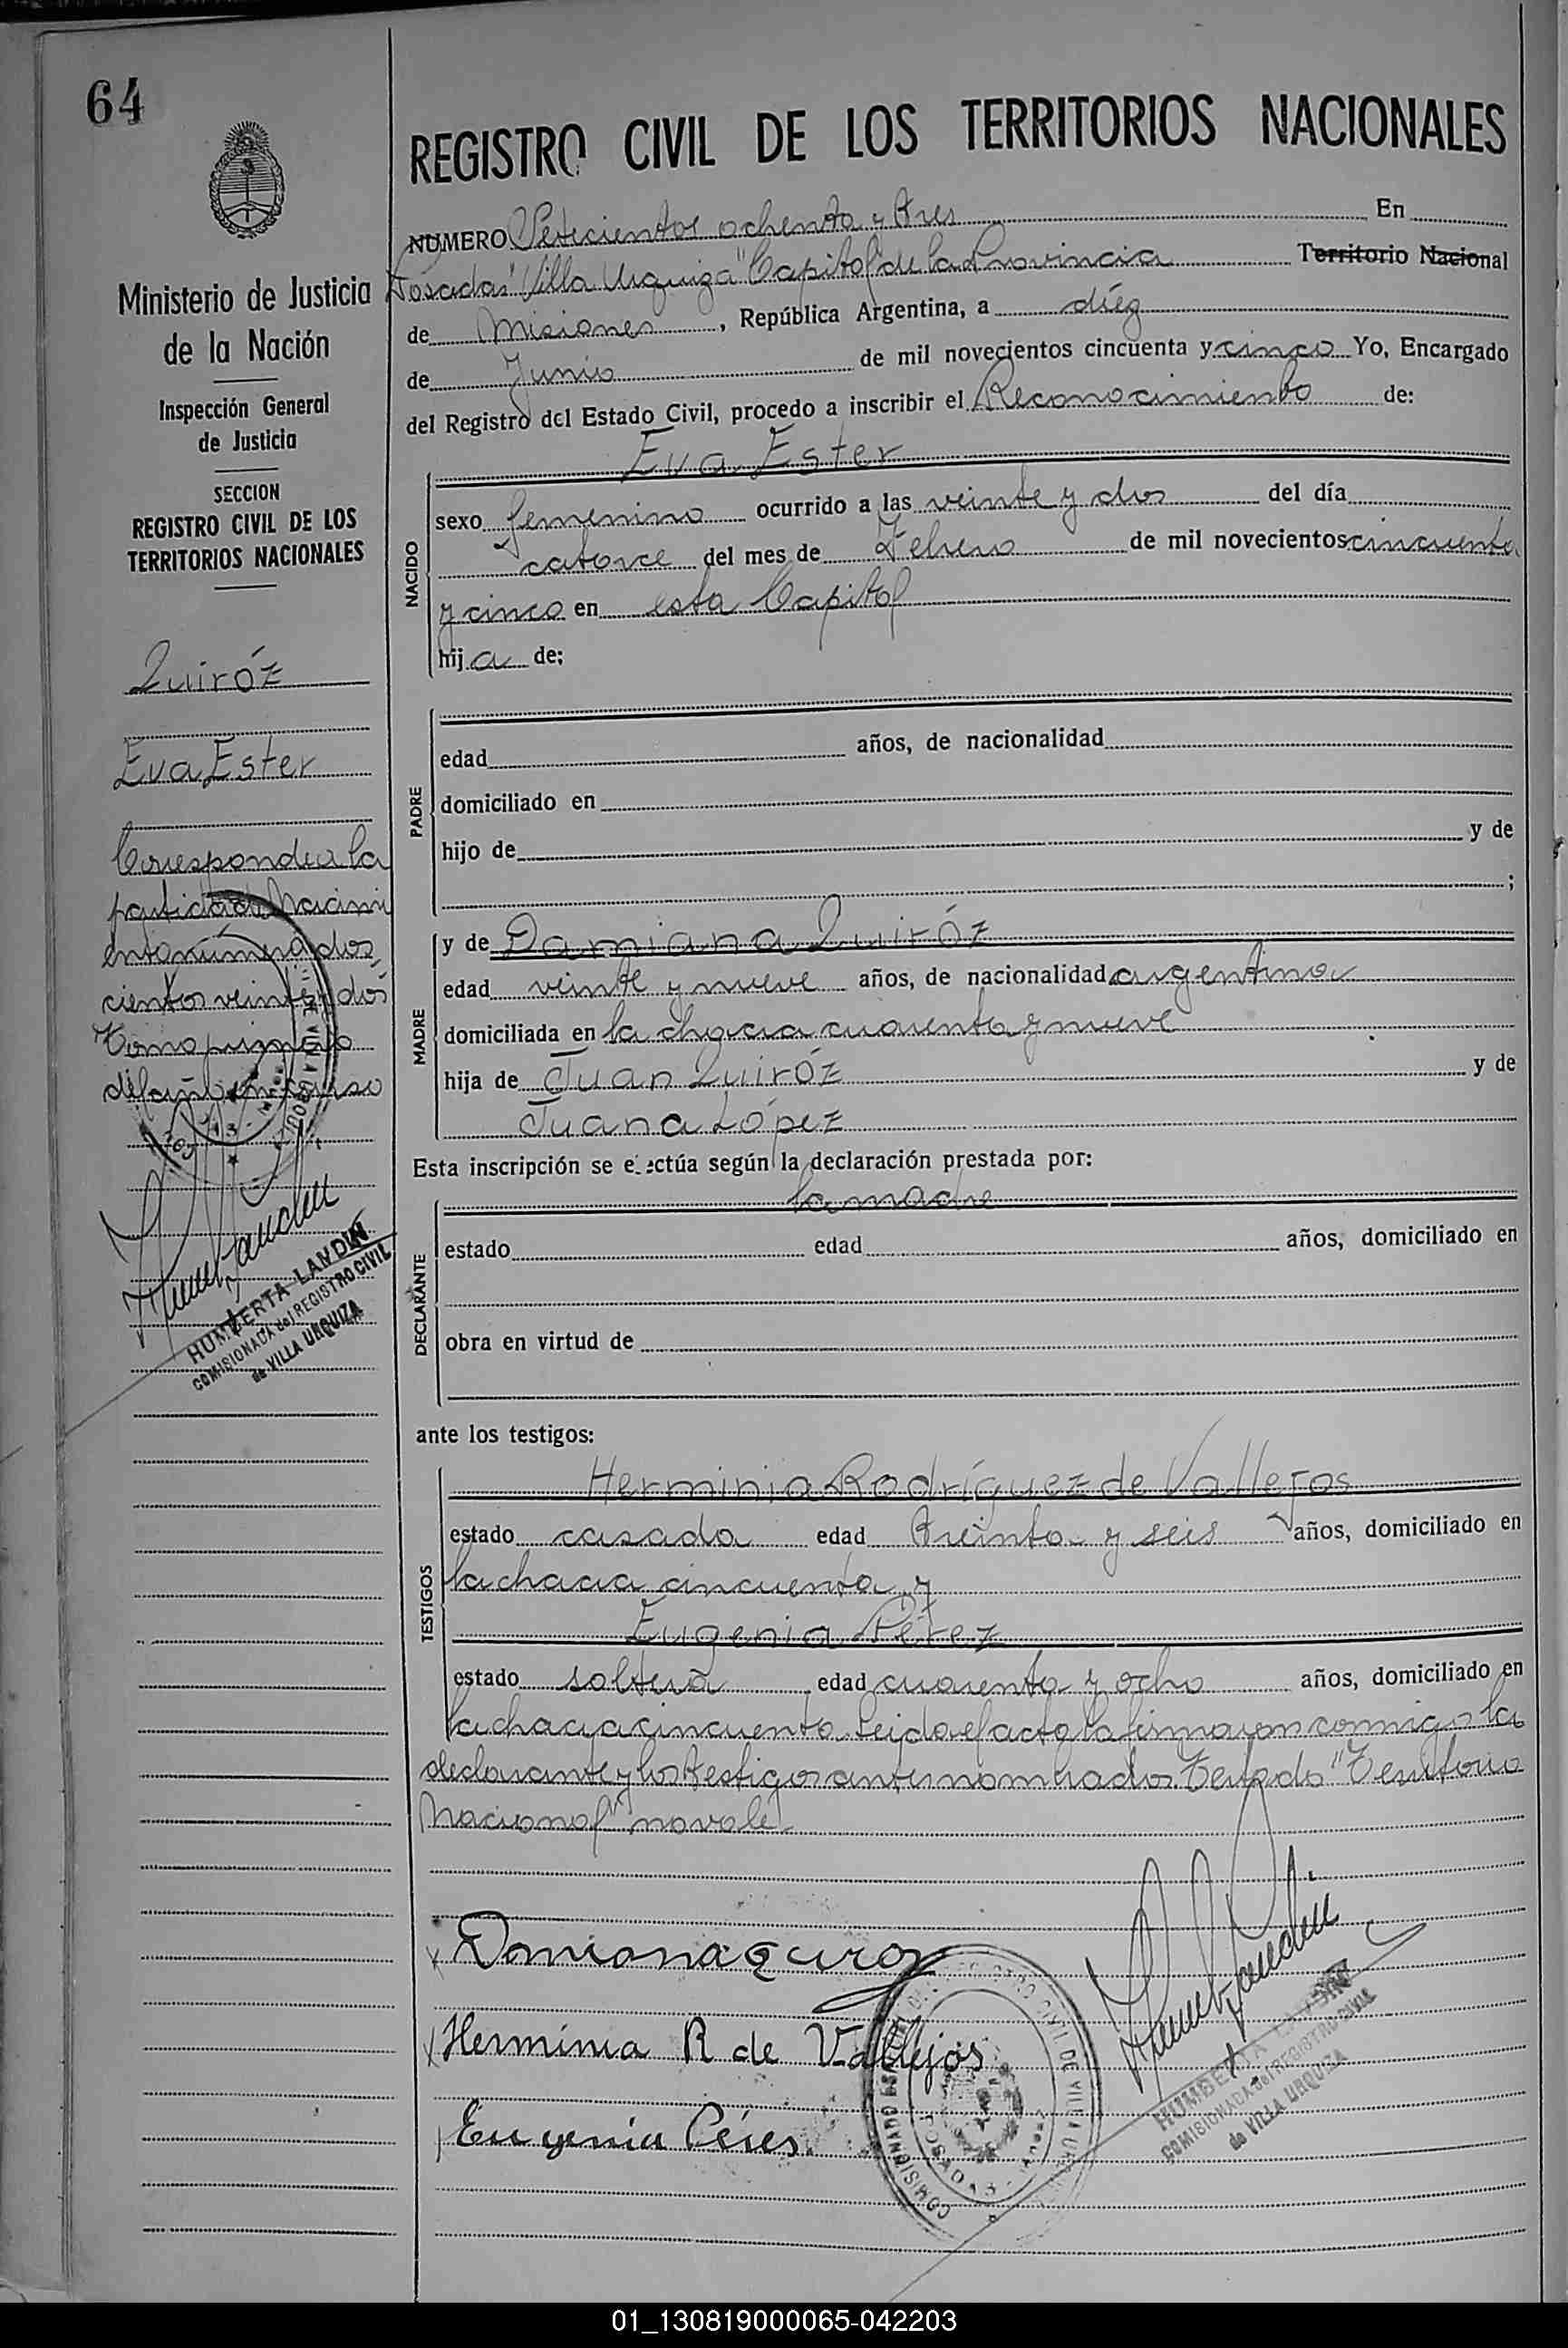 64
REGISTRO CIVIL DE LOS TERRITORIOS NACIONALES
Ministerio de Justicia
de la Nación
Inspección General
de Justicia
SECCION
REGISTRO CIVIL DE LOS
TERRITORIOS NACIONALES
Quiróz
Eva Ester
Corresponde a la
partida de Nacimi
ento número dos
cientos veinte y dos
Tomo primero
del año en curso
HUMBERTA LANDIN
COMISIONADA del REGISTRO CIVIL
de VILLA URQUIZA
NUMERO Setecientos ochenta y tres En
Posadas "Villa Urquiza" Capital de la Provincia Territorio Nacional
de Misiones, República Argentina, a diez
de Junio de mil novecientos cincuenta y cinco Yo, Encargado
del Registro del Estado Civil, procedo a inscribir el Reconocimiento de:
Eva Ester
NACIDO
sexo femenino ocurrido a las veinte y dos del día
catorce del mes de Febrero de mil novecientos cincuenta
y cinco en esta Capital
hija de:
PADRE
edad años, de nacionalidad
domiciliado en
hijo de y de
;
MADRE
y de Damiana Quiróz
edad veinte y nueve años, de nacionalidad argentina
domiciliada en la chacra cuarenta y nueve
hija de Juan Quiróz y de
Juana López
Esta inscripción se efectúa según la declaración prestada por:
la madre
DECLARANTE
estado edad años, domiciliado en
obra en virtud de
ante los testigos:
TESTIGOS
Herminia Rodríguez de Vallejos
estado casada edad treinta y seis años, domiciliado en
la chacra cincuenta y
Eugenia Pérez
estado soltera edad cuarenta y ocho años, domiciliado en
la chacra cincuenta. Leida el acta la firmaron conmigo la
declarante y los testigos antes nombrados. Testado "Territorio
Nacional" no vale.
Damiana Quiroz
Herminia R de Vallejos
Eugenia Péres.
HUMBERTA LANDIN
COMISIONADA del REGISTRO CIVIL
de VILLA URQUIZA
01_130819000065-042203